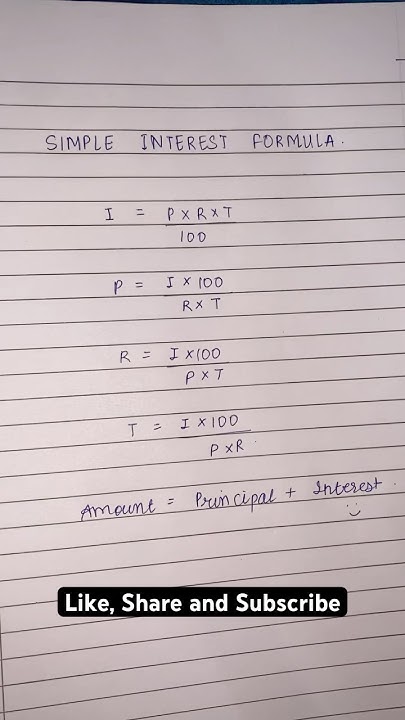 SIMPLE INTEREST FORMULA.
I = P × R × T
100
P = I × 100
R × T
R = I × 100
P × T
T = I × 100
P × R.
Amount = Principal + Interest.
Like, Share and Subscribe